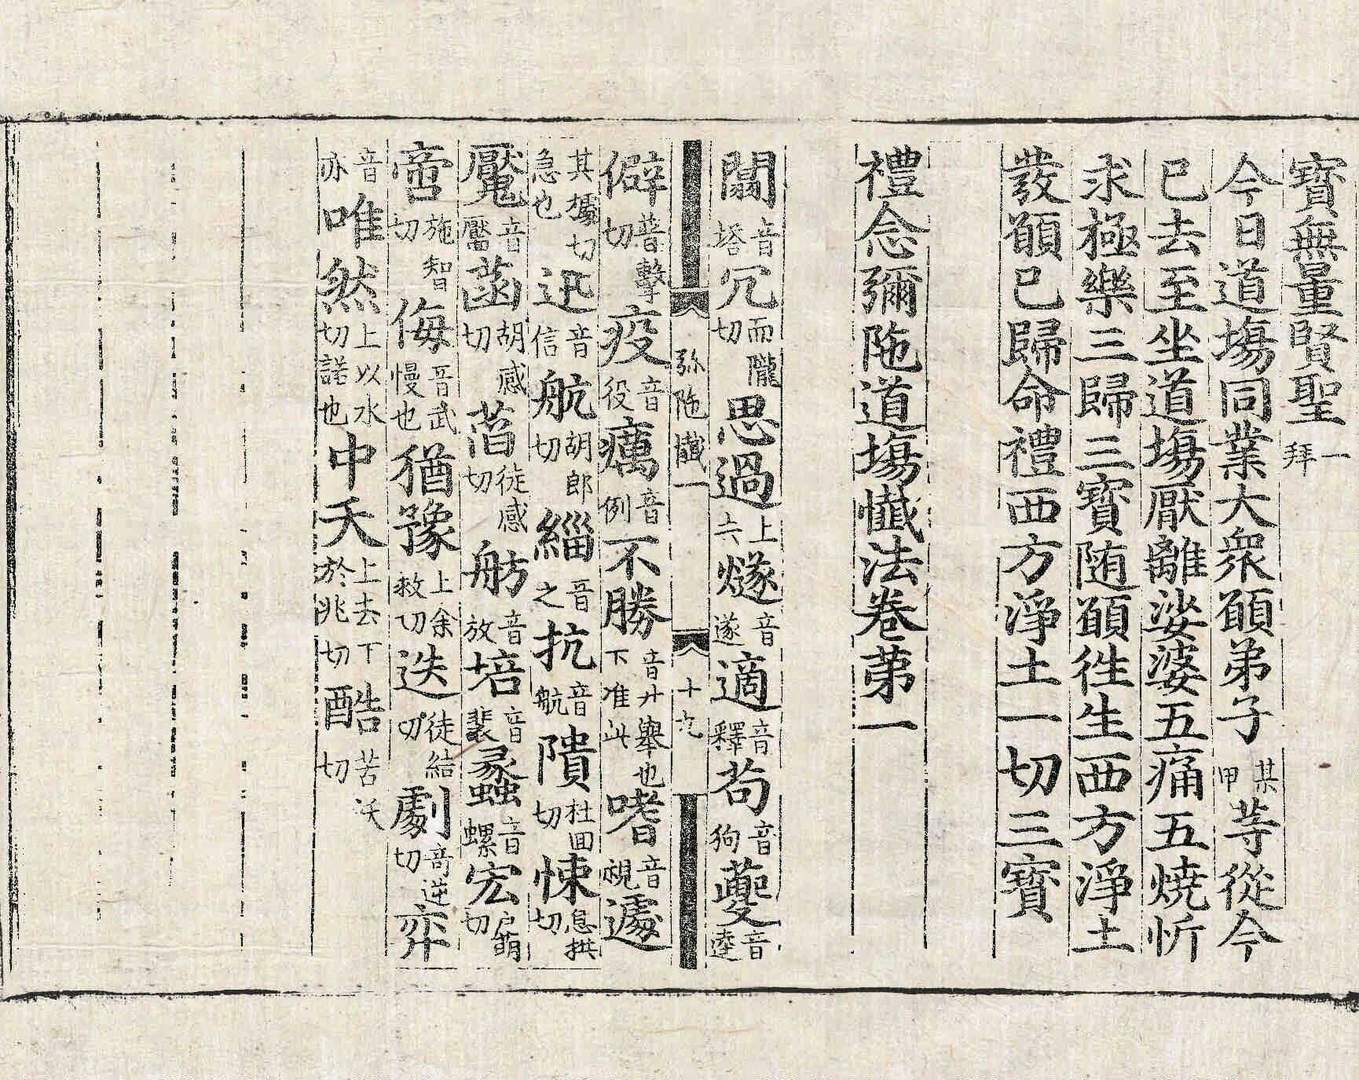 寶無量賢聖一拜
今日道場同業大衆願弟子某甲等從今
已去至坐道場厭離娑婆五痛五燒忻
求極樂三歸三寶随願徃生西方淨土
發願已歸命禮西方淨土一切三寶
禮念彌陁道場懺法卷苐一
闒音塔冗而隴切思過上六燧音遂適音釋苟音狗夔音逵
弥陁懺一 十九
僻普擊切疫音役癘音例不勝音升舉也下准此嗜音視遽
其據切急也迅音信航胡郎切緇音之抗音航隤杜回切悚息拱切
魘音黶菡胡感切萏徒感切舫音放培音裴蠡音螺宏户萌切
啻施智切侮音武慢也猶豫上余救切迭徒結切劇竒逆切弈
音亦唯然上以水切諾也中夭上去下於兆切酷苦沃切